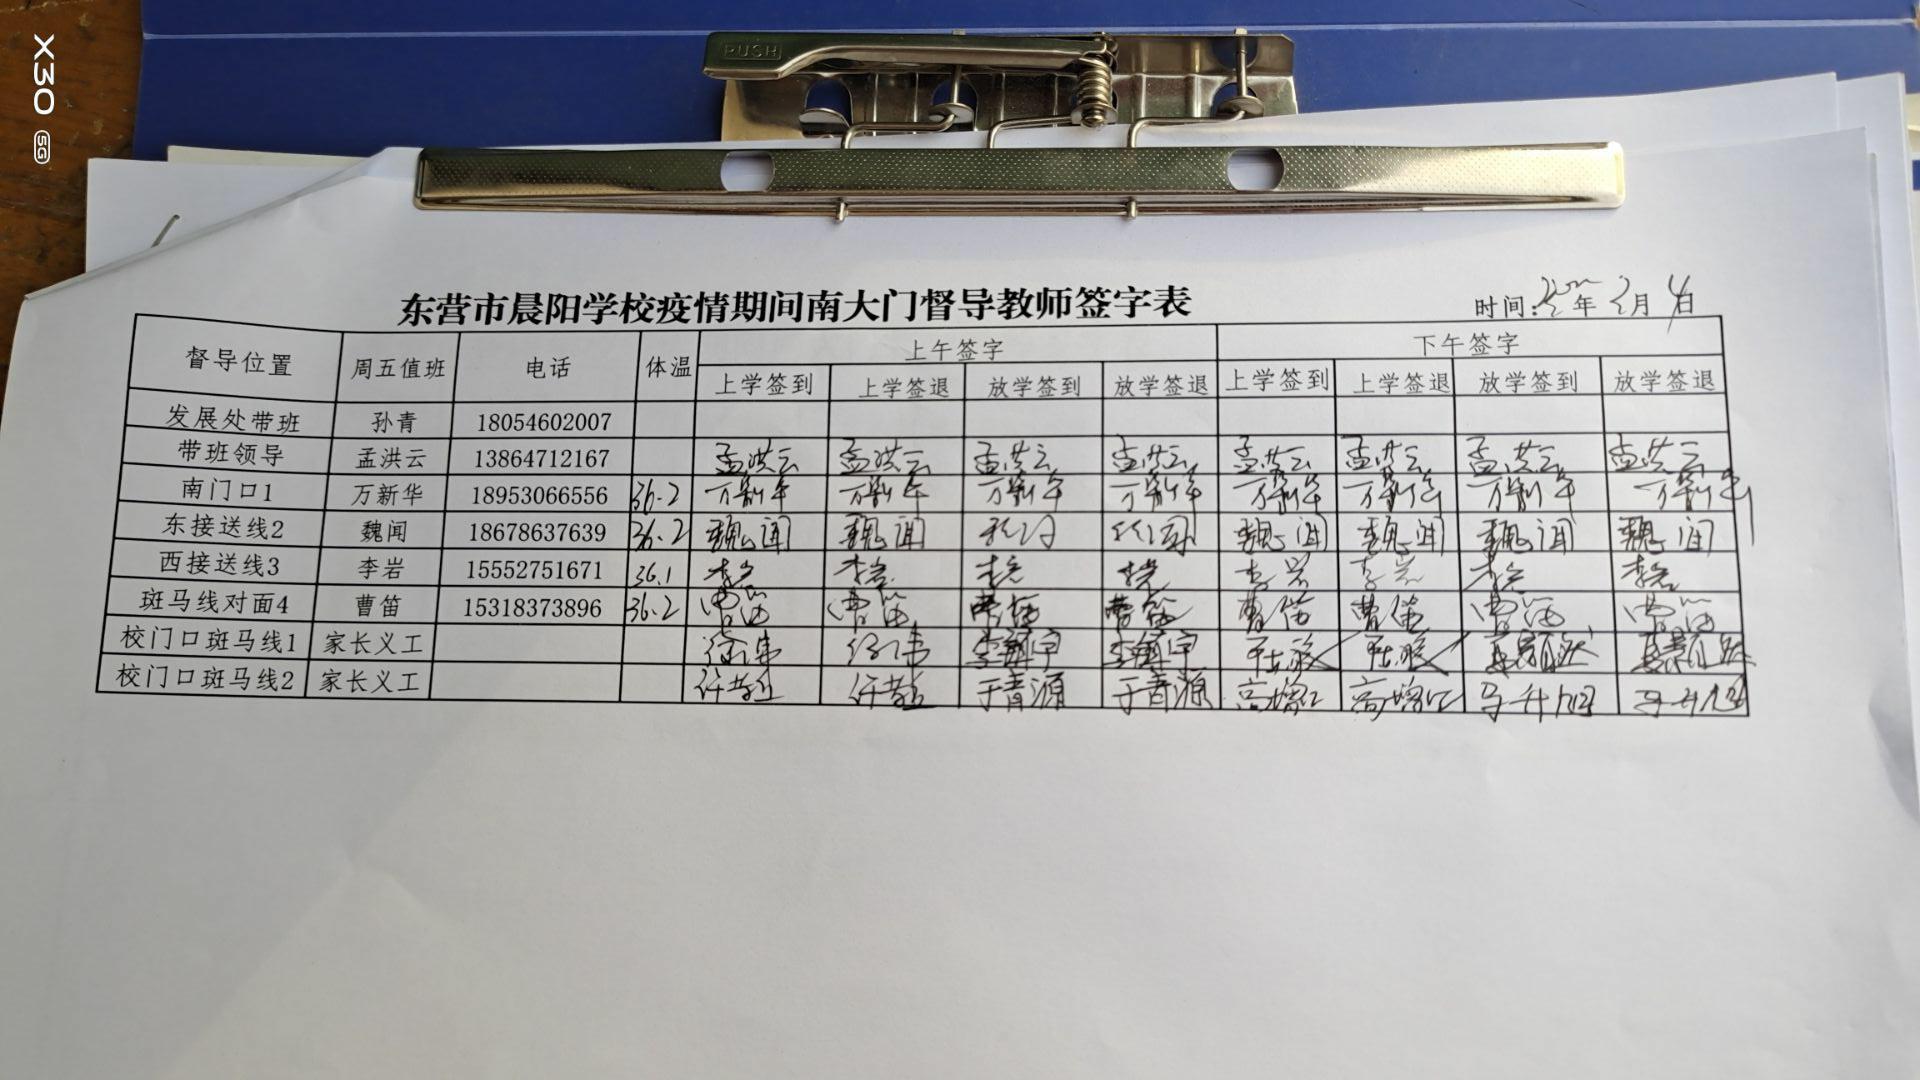 X30 5G
PUSH
东营市晨阳学校疫情期间南大门督导教师签字表
时间: 年 月 4日
督导位置 周五值班 电话 体温 上午签字 下午签字
上学签到 上学签退 放学签到 放学签退 上学签到 上学签退 放学签到 放学签退
发展处带班 孙青 18054602007
带班领导 孟洪云 13864712167 孟洪云 孟洪云 孟洪云 孟洪云 孟洪云 孟洪云 孟洪云 孟洪云
南门口1 万新华 18953066556 36.2 万新华 万新华 万新华 万新华 万新华 万新华 万新华 万新华
东接送线2 魏闻 18678637639 36.2 魏闻 魏闻 魏闻 魏闻 魏闻 魏闻
西接送线3 李岩 15552751671 36.1 李岩 李岩 李岩 李岩 李岩 李岩 李岩 李岩
斑马线对面4 曹笛 15318373896 36.2 曹笛 曹笛 曹笛 曹笛 曹笛 曹笛 曹笛 曹笛
校门口斑马线1 家长义工
校门口斑马线2 家长义工 于青源 于青源